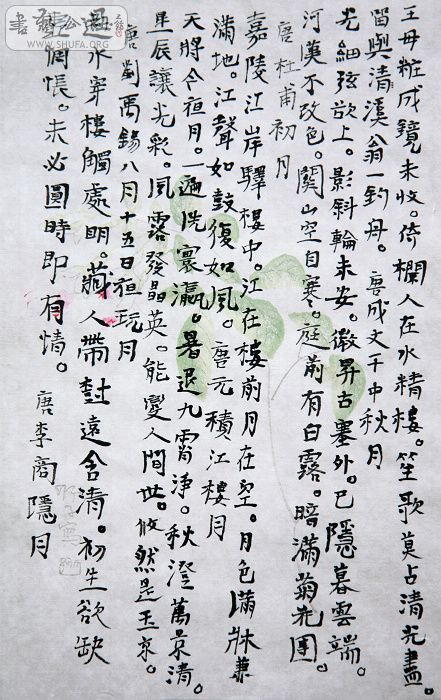 王母粧成鏡未收。倚欄人在水精樓。笙歌莫占清光盡。
留與清溪翁一釣舟。唐成文干中秋月
光細弦欲上。影斜輪未安。微昇古塞外。已隱暮雲端。
河漢不改色。關山空自寒。庭前有白露。暗滿菊花團。
唐杜甫初月
嘉陵江岸驛樓中。江在樓前月在空。月色滿牀兼
滿地。江聲如鼓復如風。唐元積江樓月
天將今夜月。一遍洗寰瀛。暑退九霄淨。秋澄萬景清。
星辰讓光彩。風露發晶英。能變人間世。攸然是玉京。
唐劉禹錫八月十五日夜玩月
過水穿樓觸處明。藏人帶樹遠含清。初生欲缺
惆悵。未必圓時即有情。唐李商隱月
WWW.SHUFA.ORG